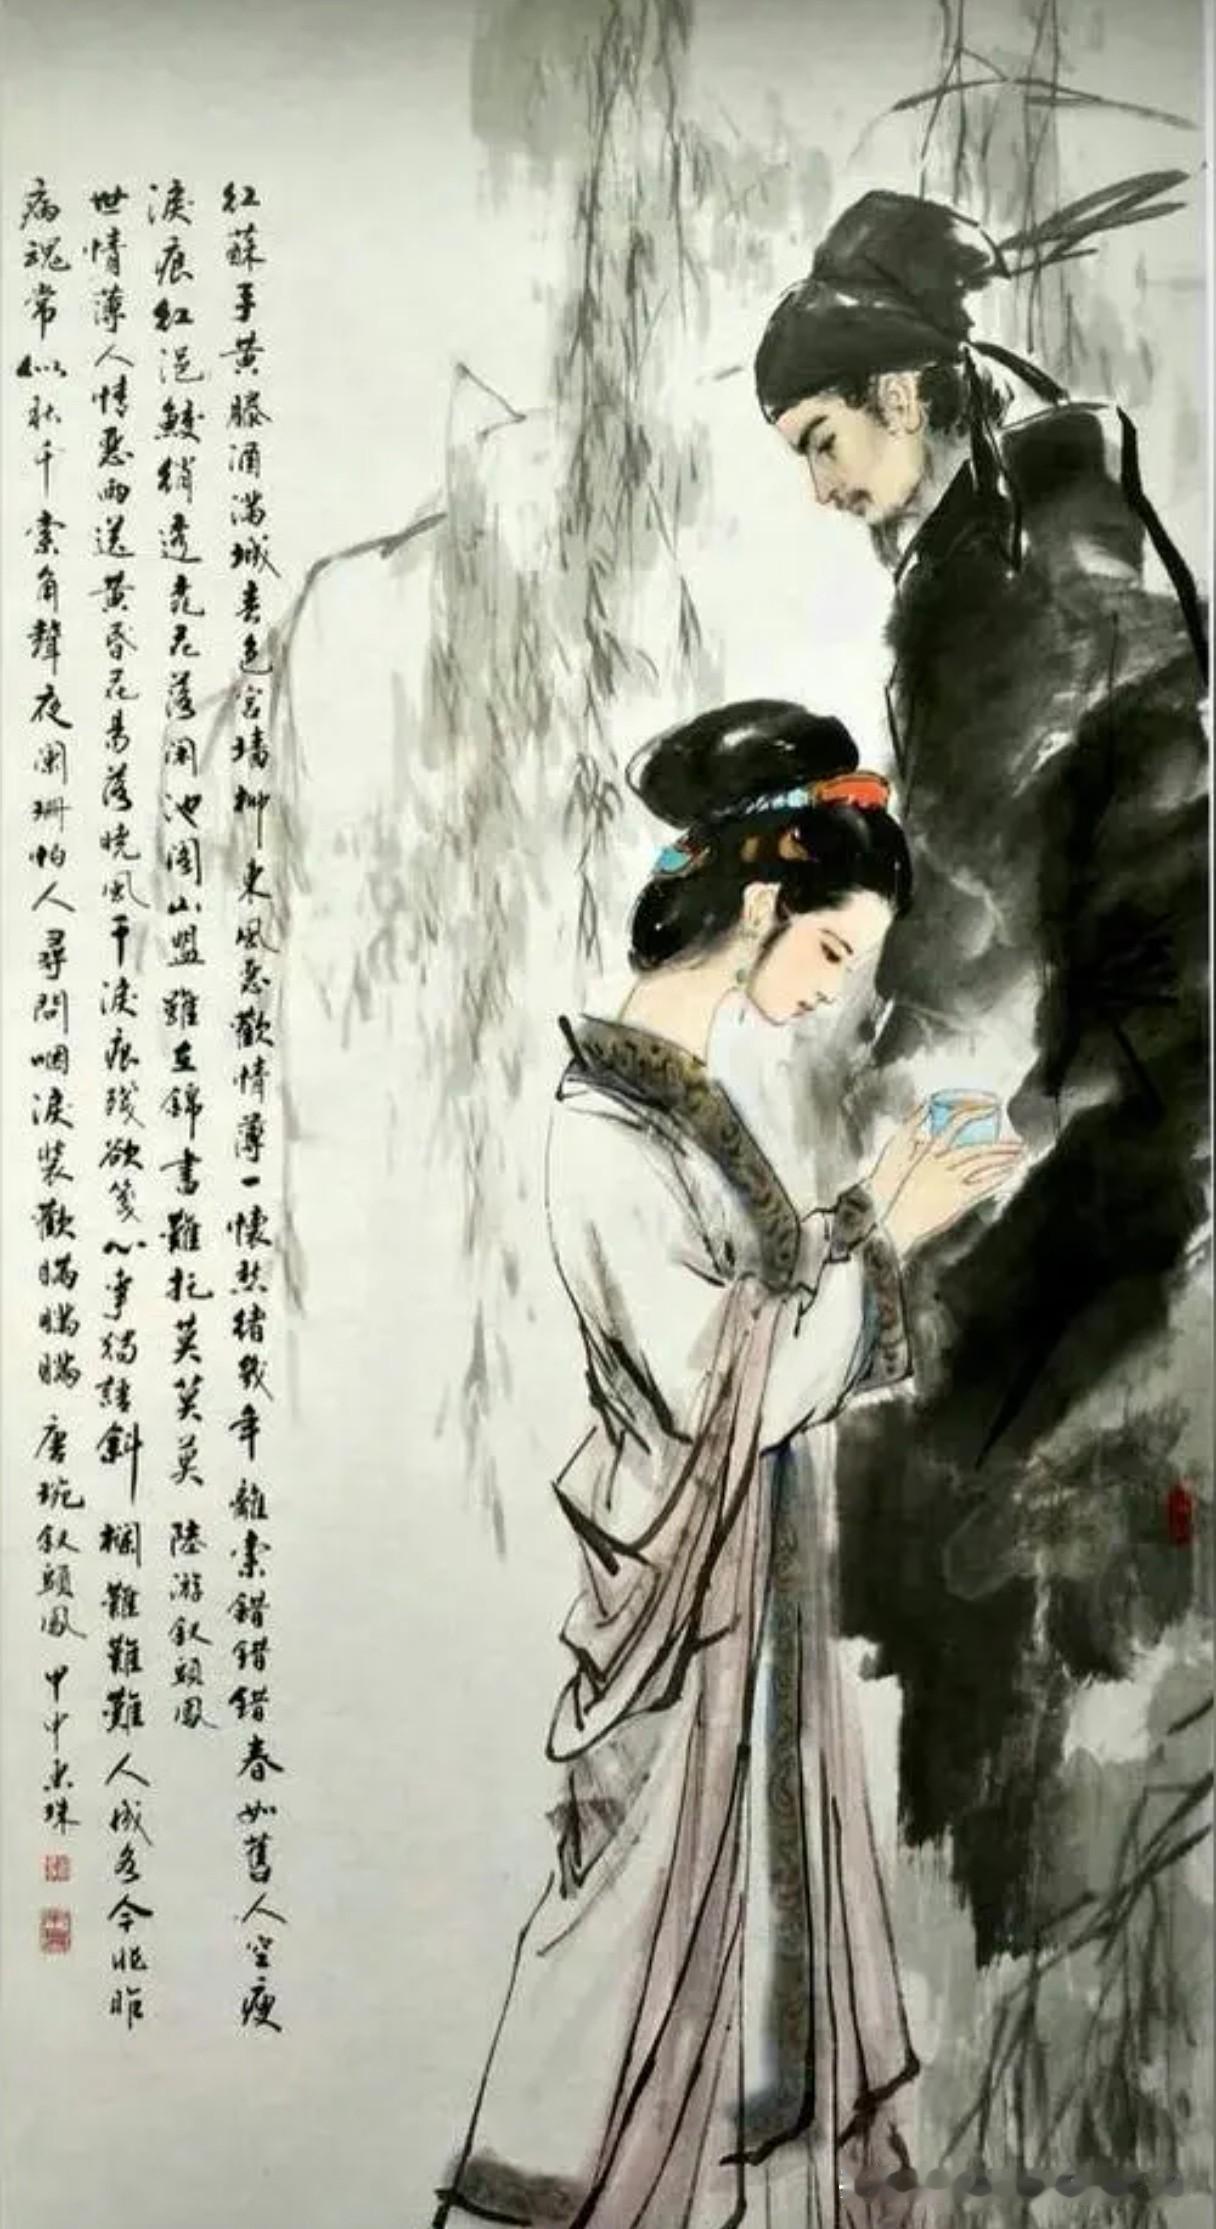 红蘇手黄滕酒满城春色宫墙柳東風惡歡情薄一懷愁緒幾年離索錯錯錯春如舊人空瘦
淚痕红浥鲛绡透桃花落闲池阁山盟雖在錦書難托莫莫莫 陸游釵頭鳳
世情薄人情惡雨送黄昏花易落晓風干淚痕残欲笺心事獨語斜欄難難難人成各今非昨
病魂常似秋千索角聲夜闌珊怕人尋問咽淚装歡瞞瞞瞞 唐琬釵頭鳳 甲申